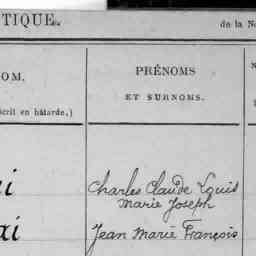 TIQUE.
de la No
OM.
PRÉNOMS
ET SURNOMS.
écrit en bâtarde.)
Charles Claude Louis
Marie Joseph
Jean Marie François